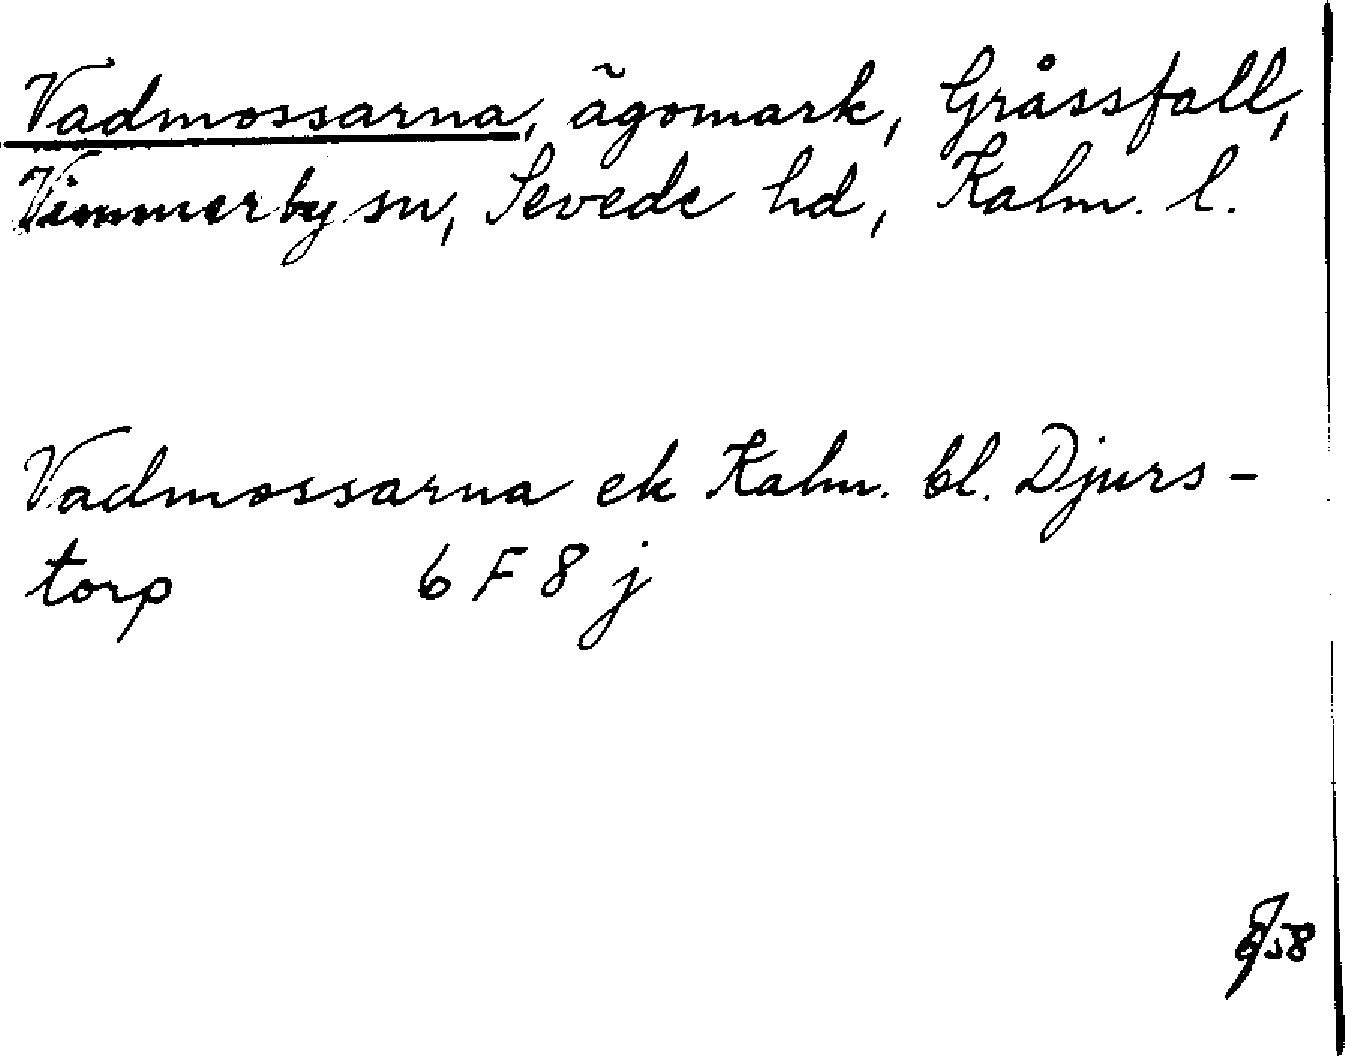 Vadmossarna, ägomark, Gråssfall,
Vimmerby sn, Sevede hd, Kalm. l.
Vadmossarna ek Kalm. bl. Djurs-
torp 6 F 8 j